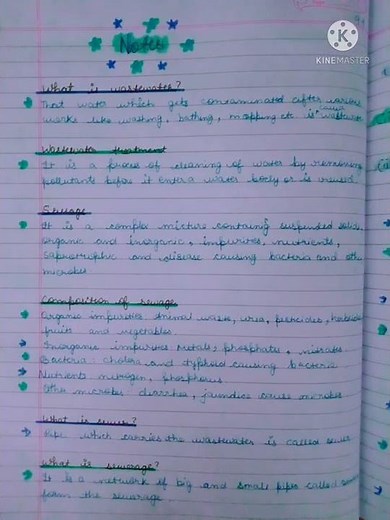 Notes
KINEMASTER
What is wastewater?
That water which gets contaminated after various
works like washing, bathing, mopping etc is called wastewater
Wastewater treatment
It is a process of cleaning of water by removing
pollutants before it enters a water body or is reused
Sewage
It is a complex mixture containing suspended solids,
organic and inorganic, impurities, nutrients,
saprotrophic and disease causing bacteria and other
microbes
Composition of sewage
Organic impurities: Animal waste, urea, pesticides, herbicides
fruits and vegetables
Inorganic impurities: Metals, phosphates, nitrates
Bacteria: cholera and typhoid causing bacteria
Nutrients: nitrogen, phosphorus
Other microbes: diarrhea, jaundice cause microbes
What is sewer?
Pipe which carries the wastewater is called sewer
What is sewerage?
It is a network of big and small pipes called
form the sewerage